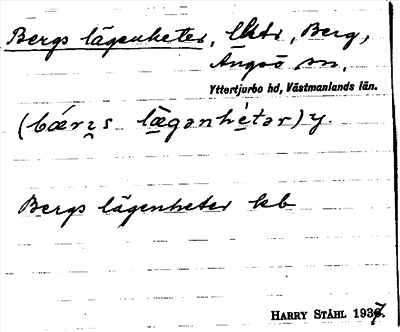 Bergs lägenheter, lktr, Berg,
Ängsö sn,
Yttertjurbo hd, Västmanlands län.
(bǽrı̯s lä̱gənhè̱tər) y.
Bergs lägenheter kb
HARRY STÅHL 1937.